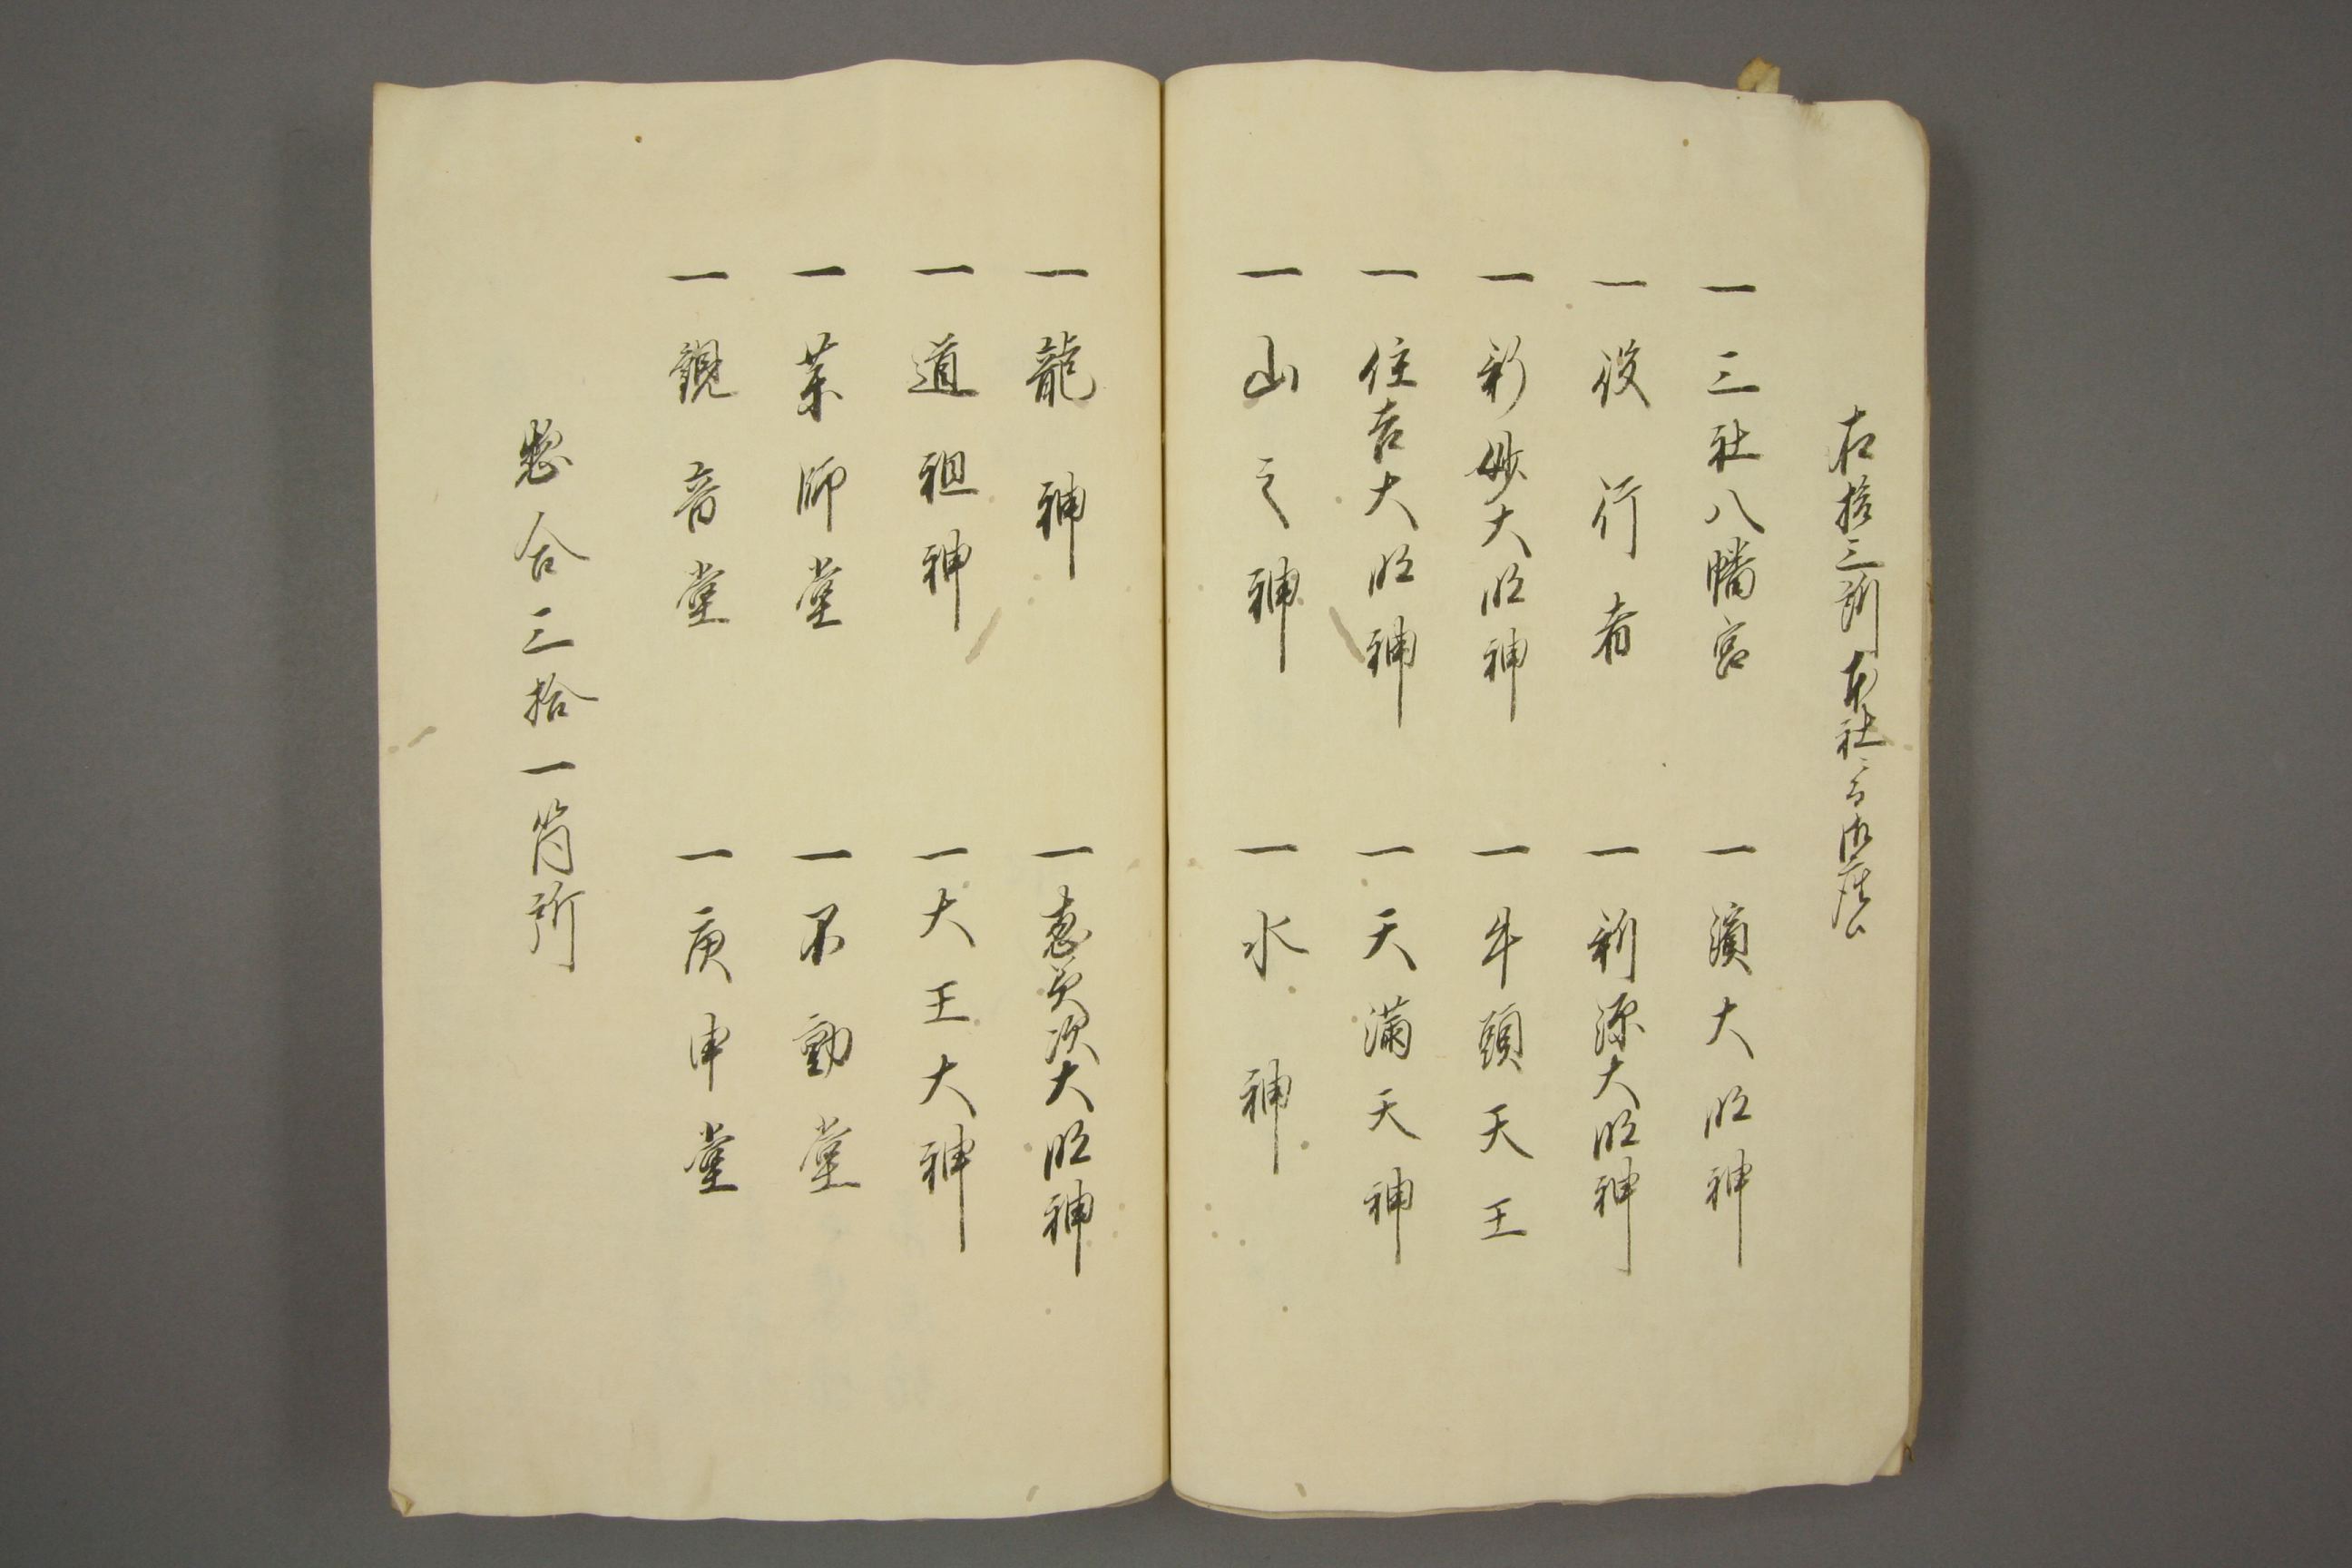 右拾三ケ所本社ニ而御座候
一三社八幡宮
一濱大明神
一役行者
一新源大明神
一彩妙大明神
一牛頭天王
一住吉大明神
一天満天神
一山之神
一水神
一龍神
一恵美次大明神
一道祖神
一大王大神
一薬師堂
一不動堂
一観音堂
一庚申堂
惣合三拾一箇所